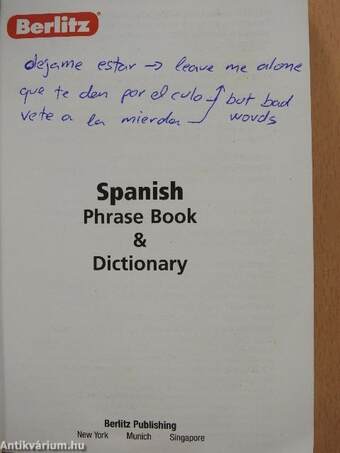 Berlitz®
dejame estar → leave me alone
que te den por el culo → but bad
vete a la mierda words
Spanish
Phrase Book
&
Dictionary
Berlitz Publishing
New York Munich Singapore
Antikvárium.hu